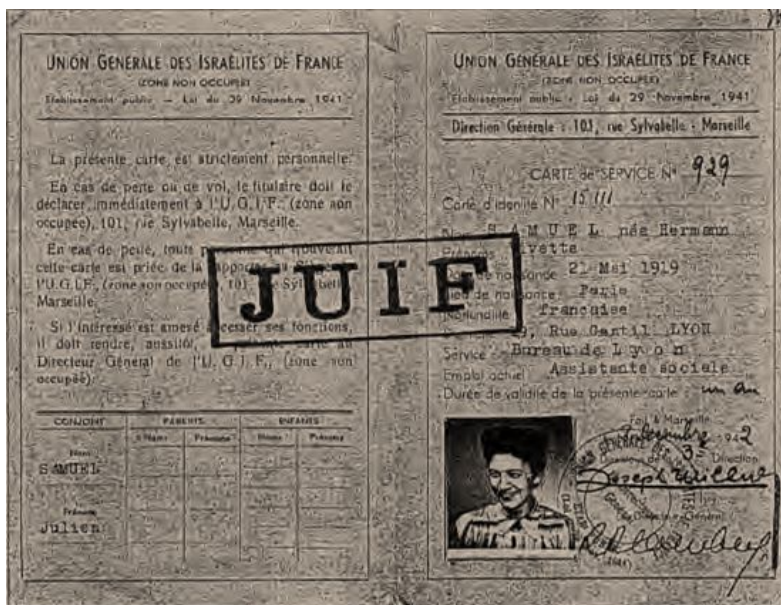 UNION GÉNÉRALE DES ISRAÉLITES DE FRANCE
(ZONE NON OCCUPÉE)
Etablissement public — Loi du 29 Novembre 1941
La présente carte est strictement personnelle.
En cas de perte ou de vol, le titulaire doit le
déclarer immédiatement à l'U.G.I.F. (zone non
occupée), 101, rue Sylvabelle, Marseille.
En cas de perte, toute qui trouverait
cette carte est priée de la
l'U.G.I.F., (zone non occupée), 101, rue Sylvabelle
Marseille.
Si l'intéressé est amené à cesser ses fonctions,
il doit rendre, aussitôt, carte au
Directeur Général de l'U.G.I.F., (zone non
occupée).
CONJOINT PARENTS ENFANTS
Noms Prénoms Noms Prénoms
Nom
SAMUEL
Prénom
Julien
JUIF
UNION GÉNÉRALE DES ISRAÉLITES DE FRANCE
(ZONE NON OCCUPÉE)
Etablissement public - Loi du 29 Novembre 1941
Direction Générale : 101, rue Sylvabelle - Marseille
CARTE de SERVICE N° 929
Carte d'identité N° 15111
Nom SAMUEL née Hermann
Prénoms Vivette
Date de naissance 21 Mai 1919
Lieu de naissance : Paris
Nationalité française
9, Rue Gentil LYON
Service Bureau de Lyon
Emploi actuel Assistante sociale
Durée de validité de la présente carte : un an
Fait à Marseille
1942
Direction
Général